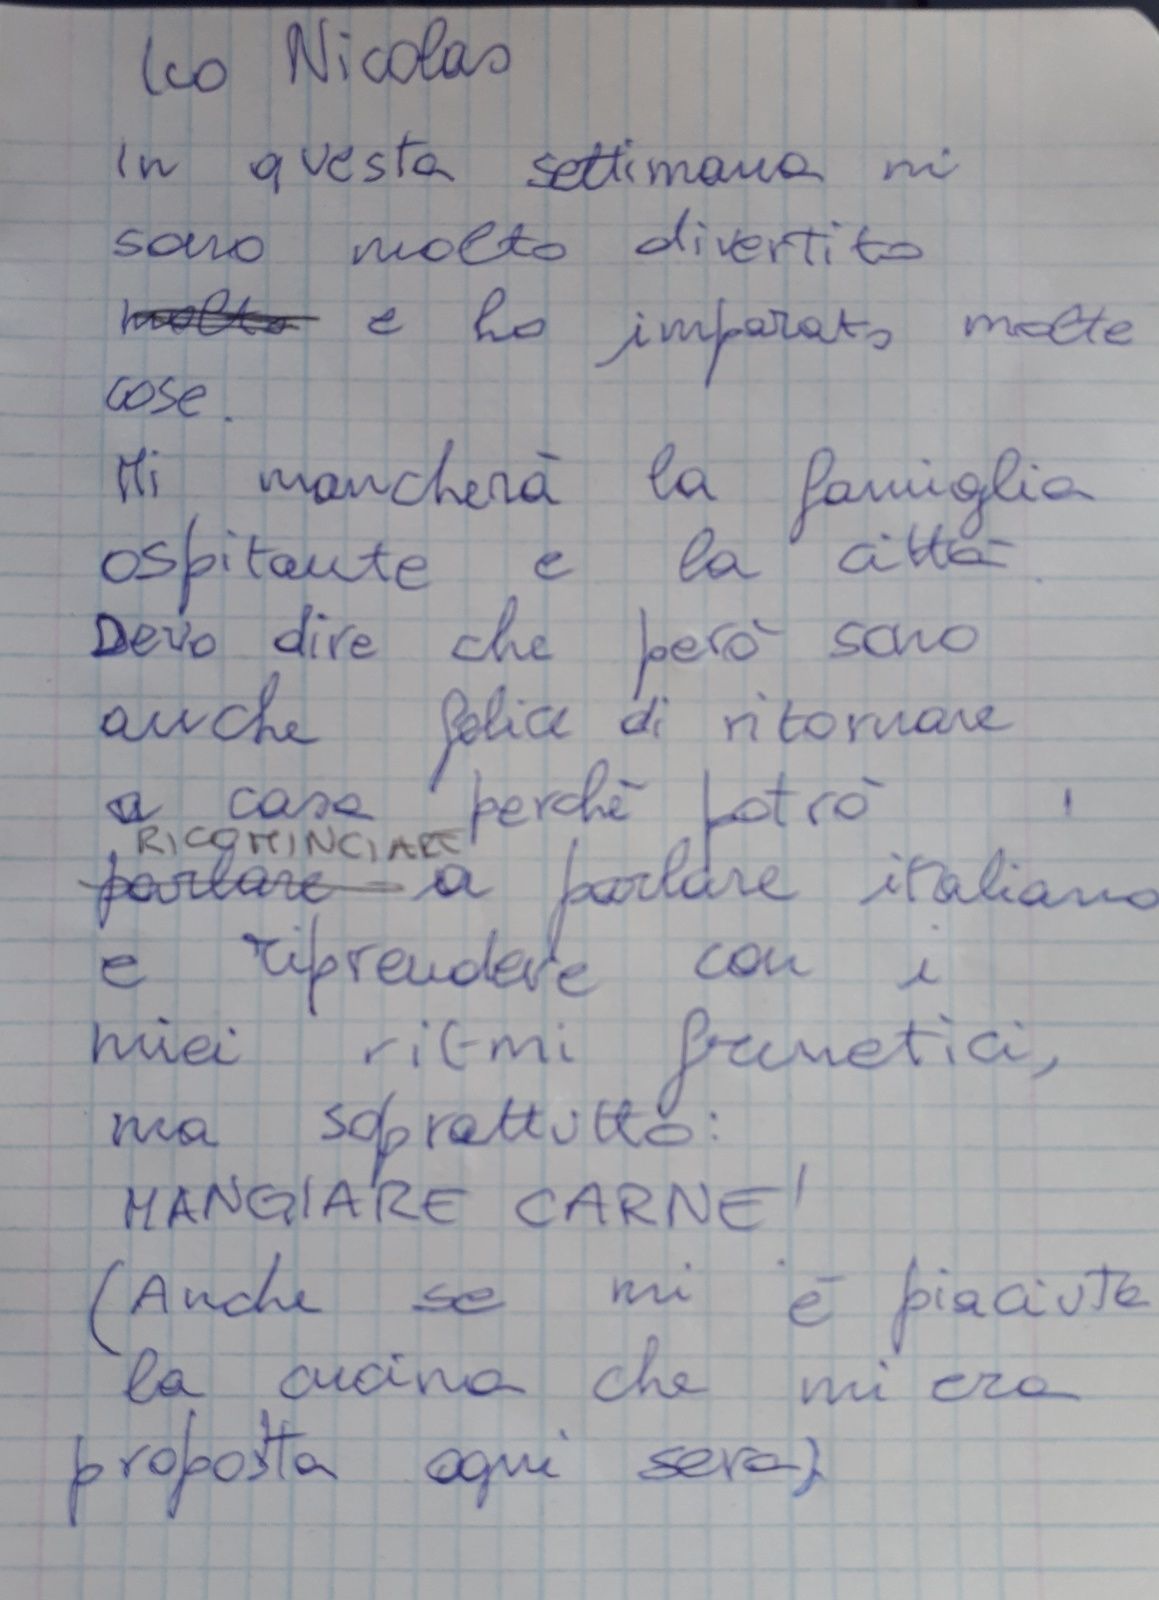 Nicolas
In questa settimana mi
sono molto divertito
molto e ho imparato molte
cose.
Mi mancherà la famiglia
ospitante e la città.
Devo dire che però sono
anche felice di ritornare
a casa perchè potrò
RICOMINCIARE
parlare a parlare italiano
e riprendere con i
miei ritmi frenetici,
ma soprattutto:
MANGIARE CARNE!
(Anche se mi è piaciuta
la cucina che mi era
proposta ogni sera)